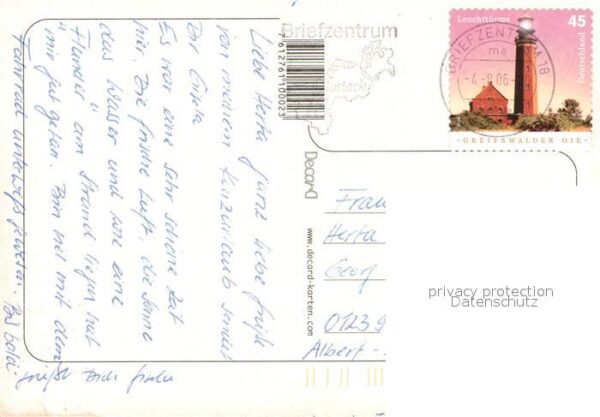 Liebe Herta ganz liebe Grüße
von meinem Kurzurlaub sendet
Dir
Es war eine sehr schöne Zeit
hier. Die frische Luft, die Sonne
das Wasser und wie eine
am Strand liegen hat
mir gut getan. Bin viel mit dem
Fahrrad unterwegs gewesen. Bis bald.
grüßt Dich
Briefzentrum
7612761100023
Decard
www.decard-karten.com
Leuchttürme 45
Deutschland
GREIFSWALDER OIE
BRIEFZENTRUM 18
ma
-4.-9.06-
Frau
Herta
Georg
01239
Albert-
privacy protection
Datenschutz